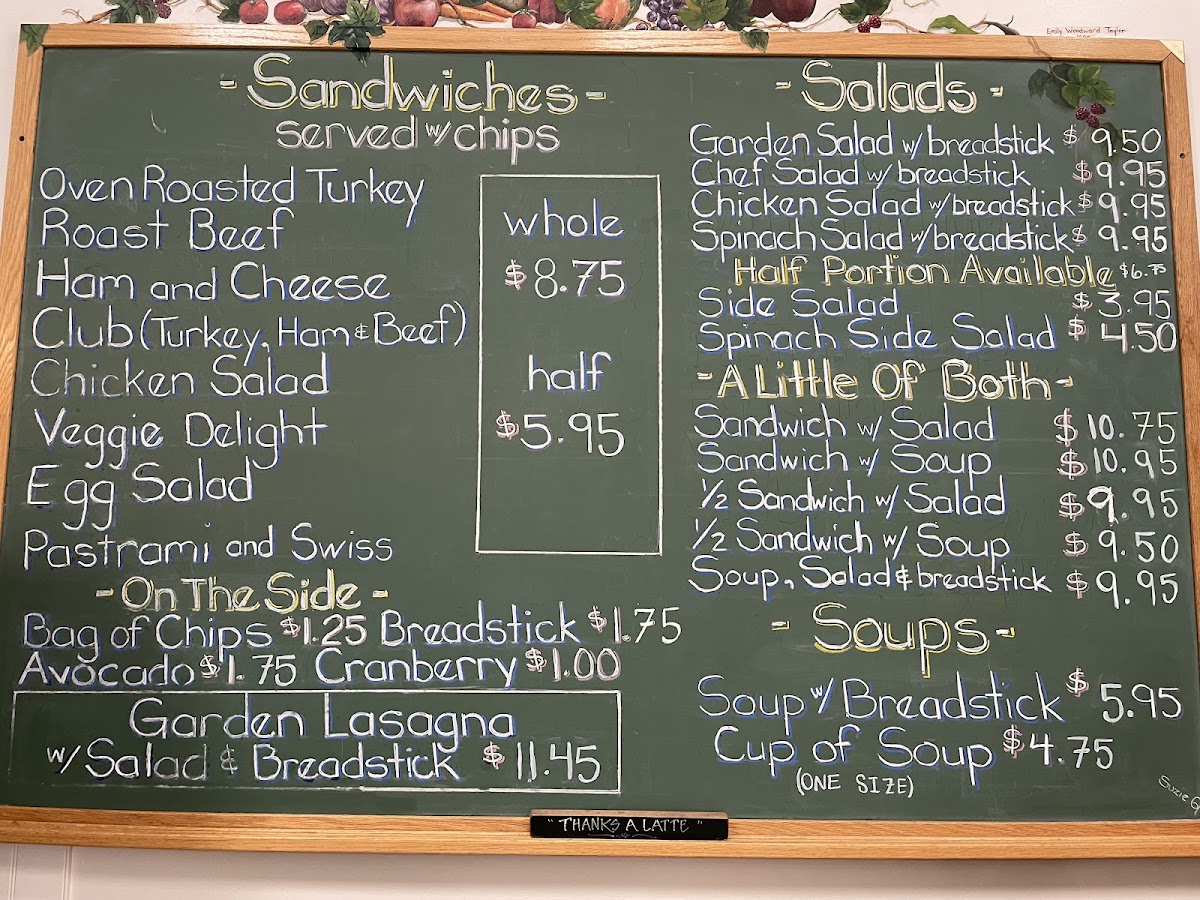 Emily Woodward Taylor
- Sandwiches -
served w/ chips
Oven Roasted Turkey
Roast Beef
Ham and Cheese
Club (Turkey, Ham & Beef)
Chicken Salad
Veggie Delight
Egg Salad
Pastrami and Swiss
whole
$8.75
half
$5.95
- On The Side -
Bag of Chips $1.25 Breadstick $1.75
Avocado $1.75 Cranberry $1.00
Garden Lasagna
w/ Salad & Breadstick $11.45
- Salads -
Garden Salad w/ breadstick $9.50
Chef Salad w/ breadstick $9.95
Chicken Salad w/ breadstick $9.95
Spinach Salad w/ breadstick $9.95
Half Portion Available $6.75
Side Salad $3.95
Spinach Side Salad $4.50
- A Little Of Both -
Sandwich w/ Salad $10.75
Sandwich w/ Soup $10.95
1/2 Sandwich w/ Salad $9.95
1/2 Sandwich w/ Soup $9.50
Soup, Salad & breadstick $9.95
- Soups -
Soup w/ Breadstick $5.95
Cup of Soup $4.75
(ONE SIZE)
Suzie
"THANKS A LATTE"